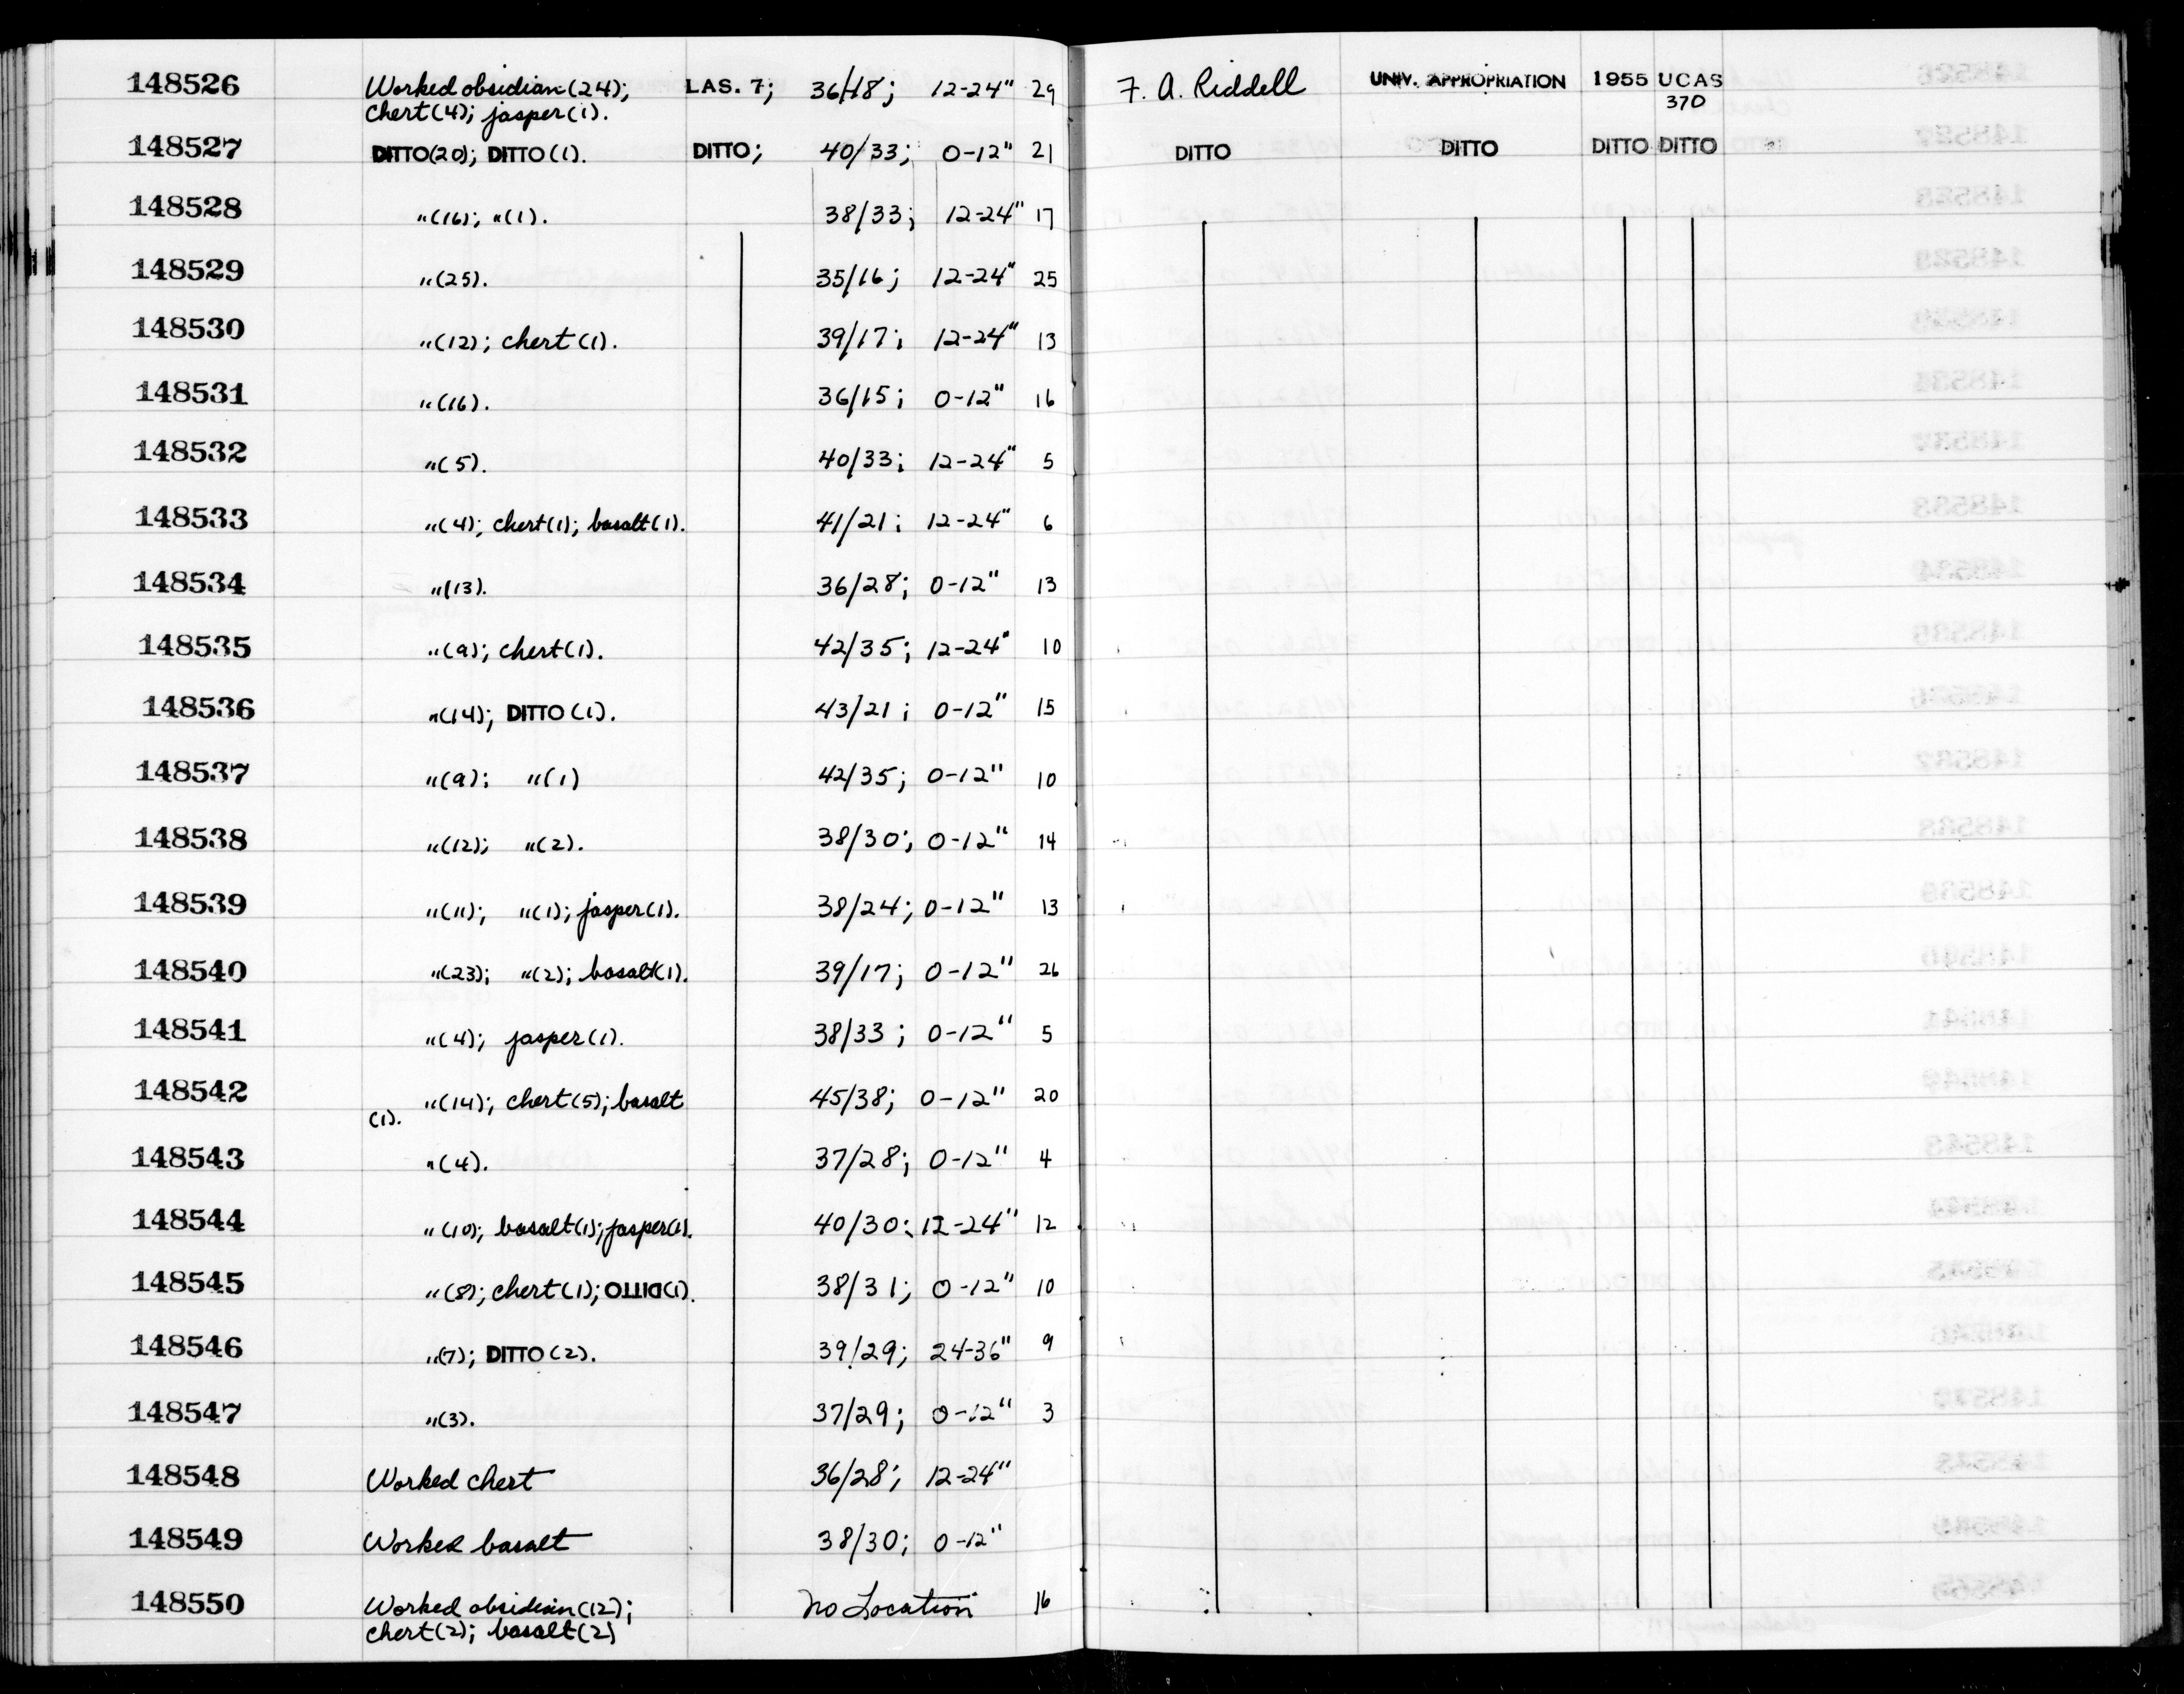 148526 Worked obsidian (24); LAS. 7; 36/18; 12-24" 29 F. A. Riddell UNIV. APPROPRIATION 1955 UCAS
chert (4); jasper (1). 370
148527 DITTO (20); DITTO (1). DITTO; 40/33; 0-12" 21 DITTO DITTO DITTO DITTO
148528 " (16); " (1). 38/33; 12-24" 17
148529 " (25). 35/16; 12-24" 25
148530 " (12); chert (1). 39/17; 12-24" 13
148531 " (16). 36/15; 0-12" 16
148532 " (5). 40/33; 12-24" 5
148533 " (4); chert (1); basalt (1). 41/21; 12-24" 6
148534 " (13). 36/28; 0-12" 13
148535 " (9); chert (1). 42/35; 12-24" 10
148536 " (14); DITTO (1). 43/21; 0-12" 15
148537 " (9); " (1) 42/35; 0-12" 10
148538 " (12); " (2). 38/30; 0-12" 14
148539 " (11); " (1); jasper (1). 38/24; 0-12" 13
148540 " (23); " (2); basalt (1). 39/17; 0-12" 26
148541 " (4); jasper (1). 38/33; 0-12" 5
148542 " (14); chert (5); basalt 45/38; 0-12" 20
(1).
148543 " (4). 37/28; 0-12" 4
148544 " (10); basalt (1); jasper (1). 40/30; 12-24" 12
148545 " (8); chert (1); DITTO (1). 38/31; 0-12" 10
148546 " (7); DITTO (2). 39/29; 24-36" 9
148547 " (3). 37/29; 0-12" 3
148548 Worked chert 36/28; 12-24"
148549 Worked basalt 38/30; 0-12"
148550 Worked obsidian (12); No Location 16
chert (2); basalt (2)